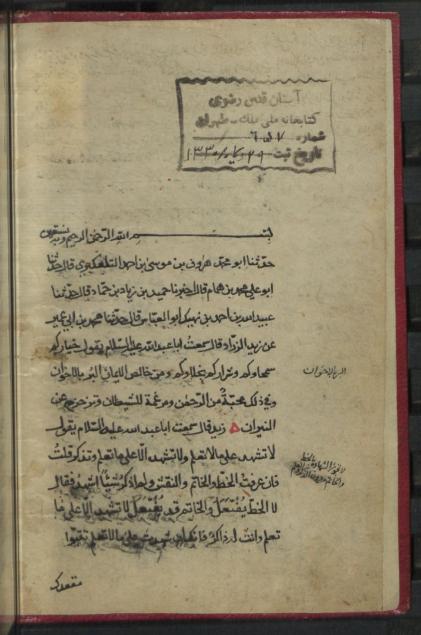 آستان قدس رضوی
کتابخانه ملی ملک - طهران
شماره ۶۰۵۷
تاریخ ثبت
بسم الله الرحمن الرحیم وبه نستعین
حدثنا ابو محمد هرون بن موسی بن احمد التلعکبری قال حدثنا
ابو علی محمد بن همام قال اخبرنا حمید بن زیاد بن حماد قال حدثنا
عبیدالله بن احمد بن نهیک ابو العباس قال حدثنا محمد بن ابی عمیر
عن زید الزراد قال سمعت ابا عبد الله علیه السلام یقول خیارکم
سمحاؤکم وشرارکم بخلاؤکم ومن خالص الایمان البر بالاخوان
وفی ذلک محبة من الرحمن ومرغمة للشیطان وتزحزح عن
النیران زید قال سمعت ابا عبد الله علیه السلام یقول
لا تشهد علی ما لا تعلم ولا تشهد الا علی ما تعلم وتذکر قلت
فان عرفت الخط والخاتم والنقش ولم اذکر شیئا اشهد فقال
لا الخط یفتعل والخاتم قد یفتعل لا تشهد الا علی ما
تعلم وانت له ذاکر فانک ان شهدت علی ما لا تعلم تتبوأ
مقعدک
البر بالاخوان